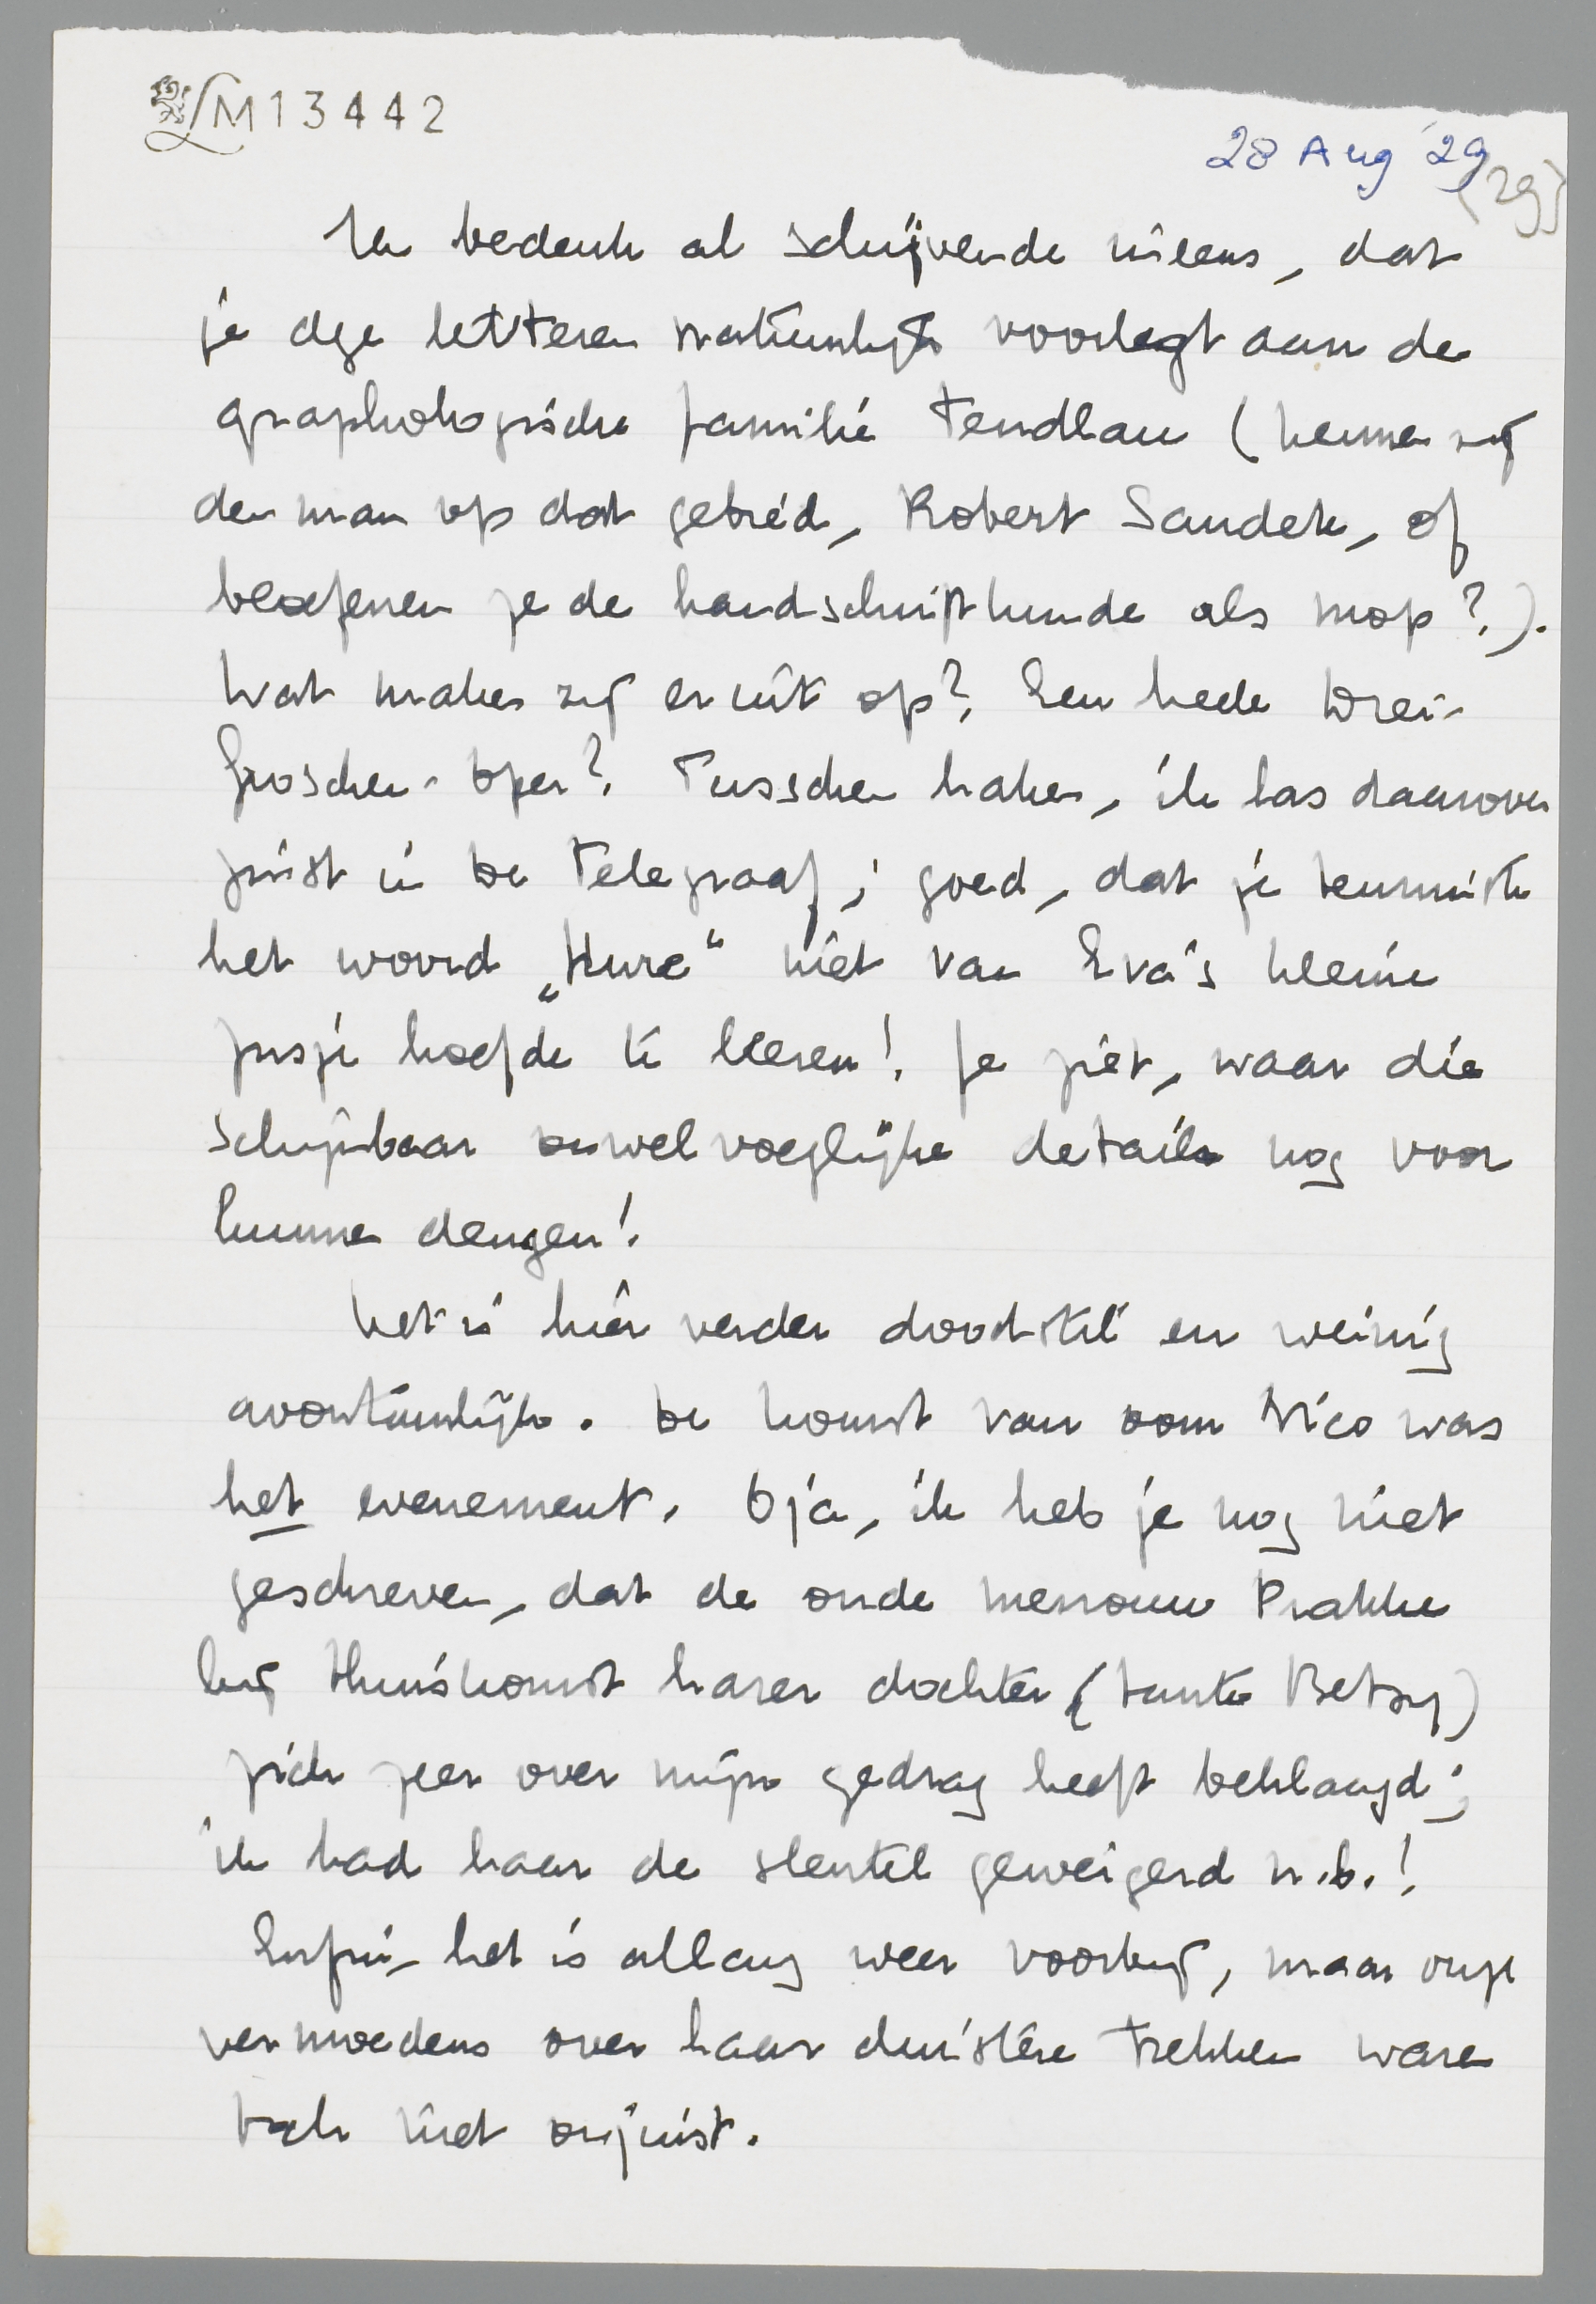 LM13442
28 Aug '29
[29]
Ik bedenk al schrijvende ineens, dat
je deze letteren natuurlijk voorlegt aan de
graphologische familie Tendlau (kennen zij
den man op dat gebied, Robert Saudek, of
beoefenen ze de handschriftkunde als mop?).
Wat maken zij eruit op? Een heele Drei-
groschen-Oper? Tusschen haken, ik las daarover
juist in De Telegraaf; goed, dat je tenminste
het woord „Hure“ niet van Eva's kleine
zusje hoefde te leeren! Je ziet, waar die
schijnbaar onwelvoeglijke details nog voor
kunnen deugen!
Het is hier verder doodstil en weinig
avontuurlijk. De komst van oom Nico was
het evenement. O ja, ik heb je nog niet
geschreven, dat de oude mevrouw Prakke
bij thuiskomst harer dochter (tante Betsy)
zich zeer over mijn gedrag heeft beklaagd;
ik had haar de sleutel geweigerd n.b.!
Enfin, het is allang weer voorbij, maar onze
vermoedens over haar duistere trekken waren
toch niet onjuist.